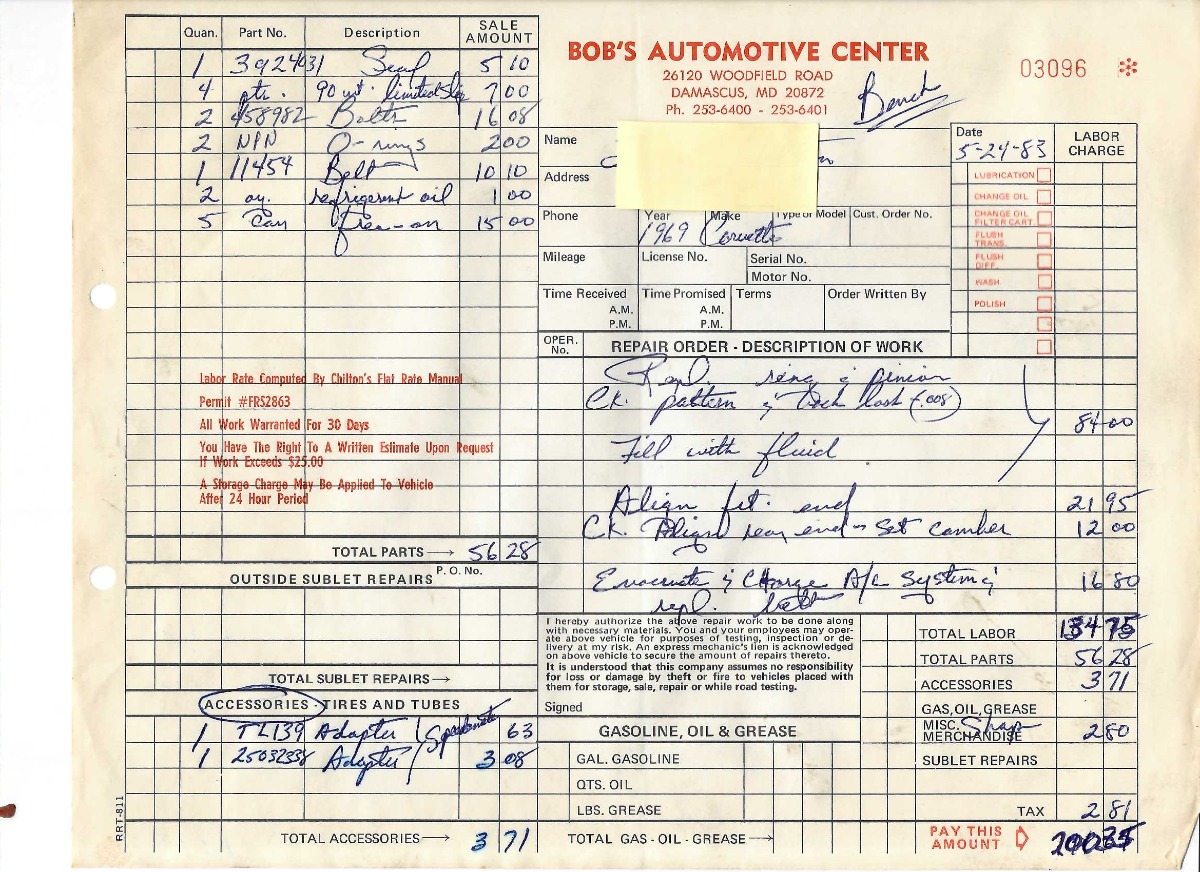 BOB'S AUTOMOTIVE CENTER
26120 WOODFIELD ROAD
DAMASCUS, MD 20872
Ph. 253-6400 - 253-6401
Bench
03096
Quan. Part No. Description SALE AMOUNT
1 3924931 Seal 5 10
4 qtr. 90 wt. limited slip 7 00
2 458982 Bolts 16 08
2 N/N O-rings 2 00
1 11454 Belt 10 10
2 oz. refrigerent oil 1 00
5 Can free-on 15 00
Labor Rate Computed By Chilton's Flat Rate Manual
Permit #FRS2863
All Work Warranted For 30 Days
You Have The Right To A Written Estimate Upon Request
If Work Exceeds $25.00
A Storage Charge May Be Applied To Vehicle
After 24 Hour Period
TOTAL PARTS 56 28
OUTSIDE SUBLET REPAIRS P.O. No.
TOTAL SUBLET REPAIRS
ACCESSORIES - TIRES AND TUBES
1 TL139 Adapter 63
1 25032338 Adapter 3 08
TOTAL ACCESSORIES 3 71
RRT-811
Name
Address
Phone Year Make Type or Model Cust. Order No.
1969 Corvette
Mileage License No. Serial No.
Motor No.
Time Received Time Promised Terms Order Written By
A.M. A.M.
P.M. P.M.
Date LABOR CHARGE
5-24-83
LUBRICATION
CHANGE OIL
CHANGE OIL
FILTER CART.
FLUSH
TRANS.
FLUSH
DIFF.
WASH
POLISH
OPER. No. REPAIR ORDER - DESCRIPTION OF WORK
Repl. ring & pinion
Ck. pattern & back lash (.008)
84 00
Fill with fluid
Align frt. end 21 95
Ck. Align rear end - Set camber 12 00
Evacuate & Charge A/C System & 16 80
repl. belt
I hereby authorize the above repair work to be done along
with necessary materials. You and your employees may oper-
ate above vehicle for purposes of testing, inspection or de-
livery at my risk. An express mechanic's lien is acknowledged
on above vehicle to secure the amount of repairs thereto.
It is understood that this company assumes no responsibility
for loss or damage by theft or fire to vehicles placed with
them for storage, sale, repair or while road testing.
Signed
GASOLINE, OIL & GREASE
GAL. GASOLINE
QTS. OIL
LBS. GREASE
TOTAL GAS - OIL - GREASE
TOTAL LABOR 134 75
TOTAL PARTS 56 28
ACCESSORIES 3 71
GAS, OIL, GREASE
MISC. Shop
MERCHANDISE 2 80
SUBLET REPAIRS
TAX 2 81
PAY THIS
AMOUNT